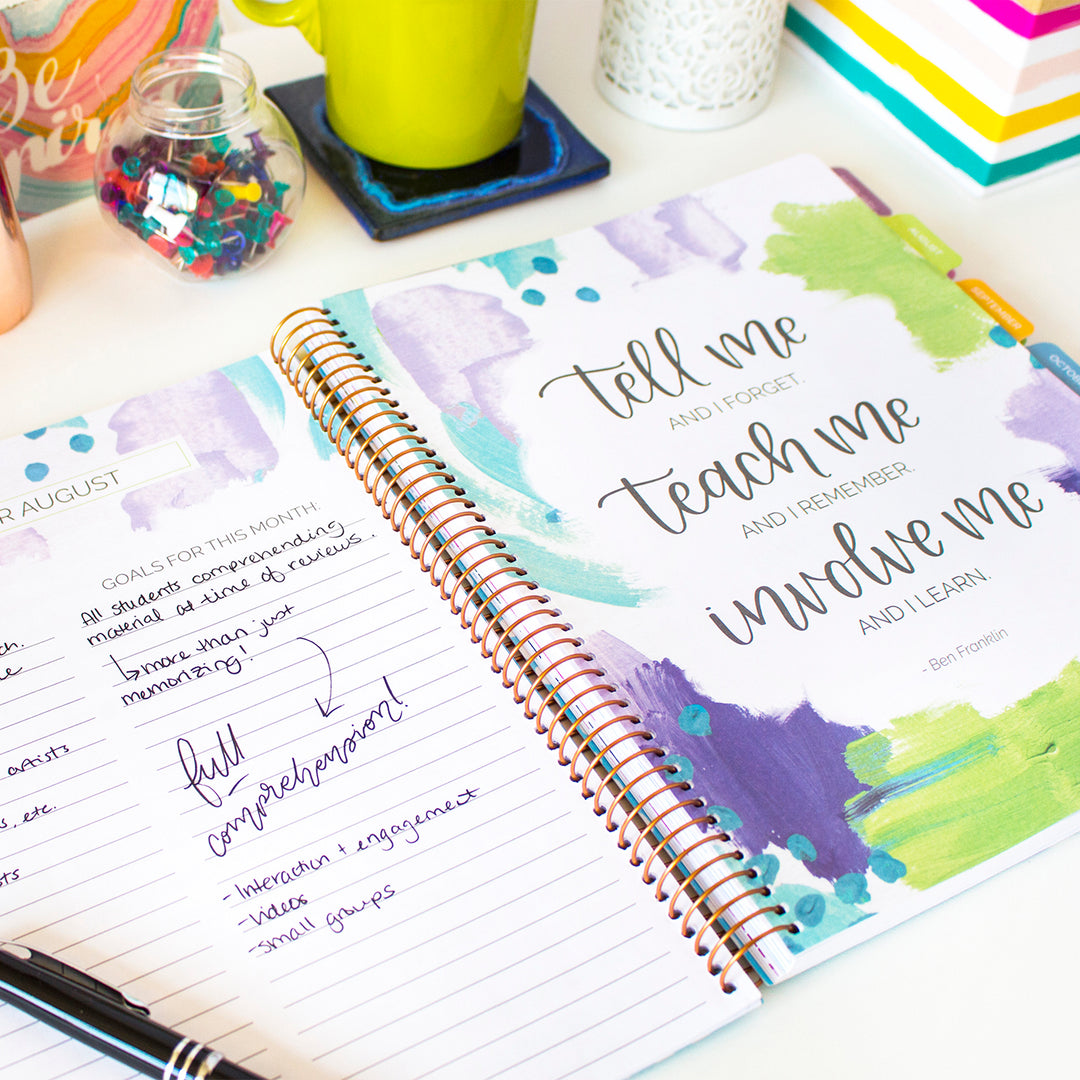 Be
R AUGUST
GOALS FOR THIS MONTH:
All students comprehending
material at time of reviews.
↳ more than just
memorizing!
full
comprehension!
- Interaction + engagement
- videos
- small groups
artists
s, etc.
sts
tell me
AND I FORGET.
teach me
AND I REMEMBER.
involve me
AND I LEARN.
- Ben Franklin
AUGUST
SEPTEMBER
OCTOBE